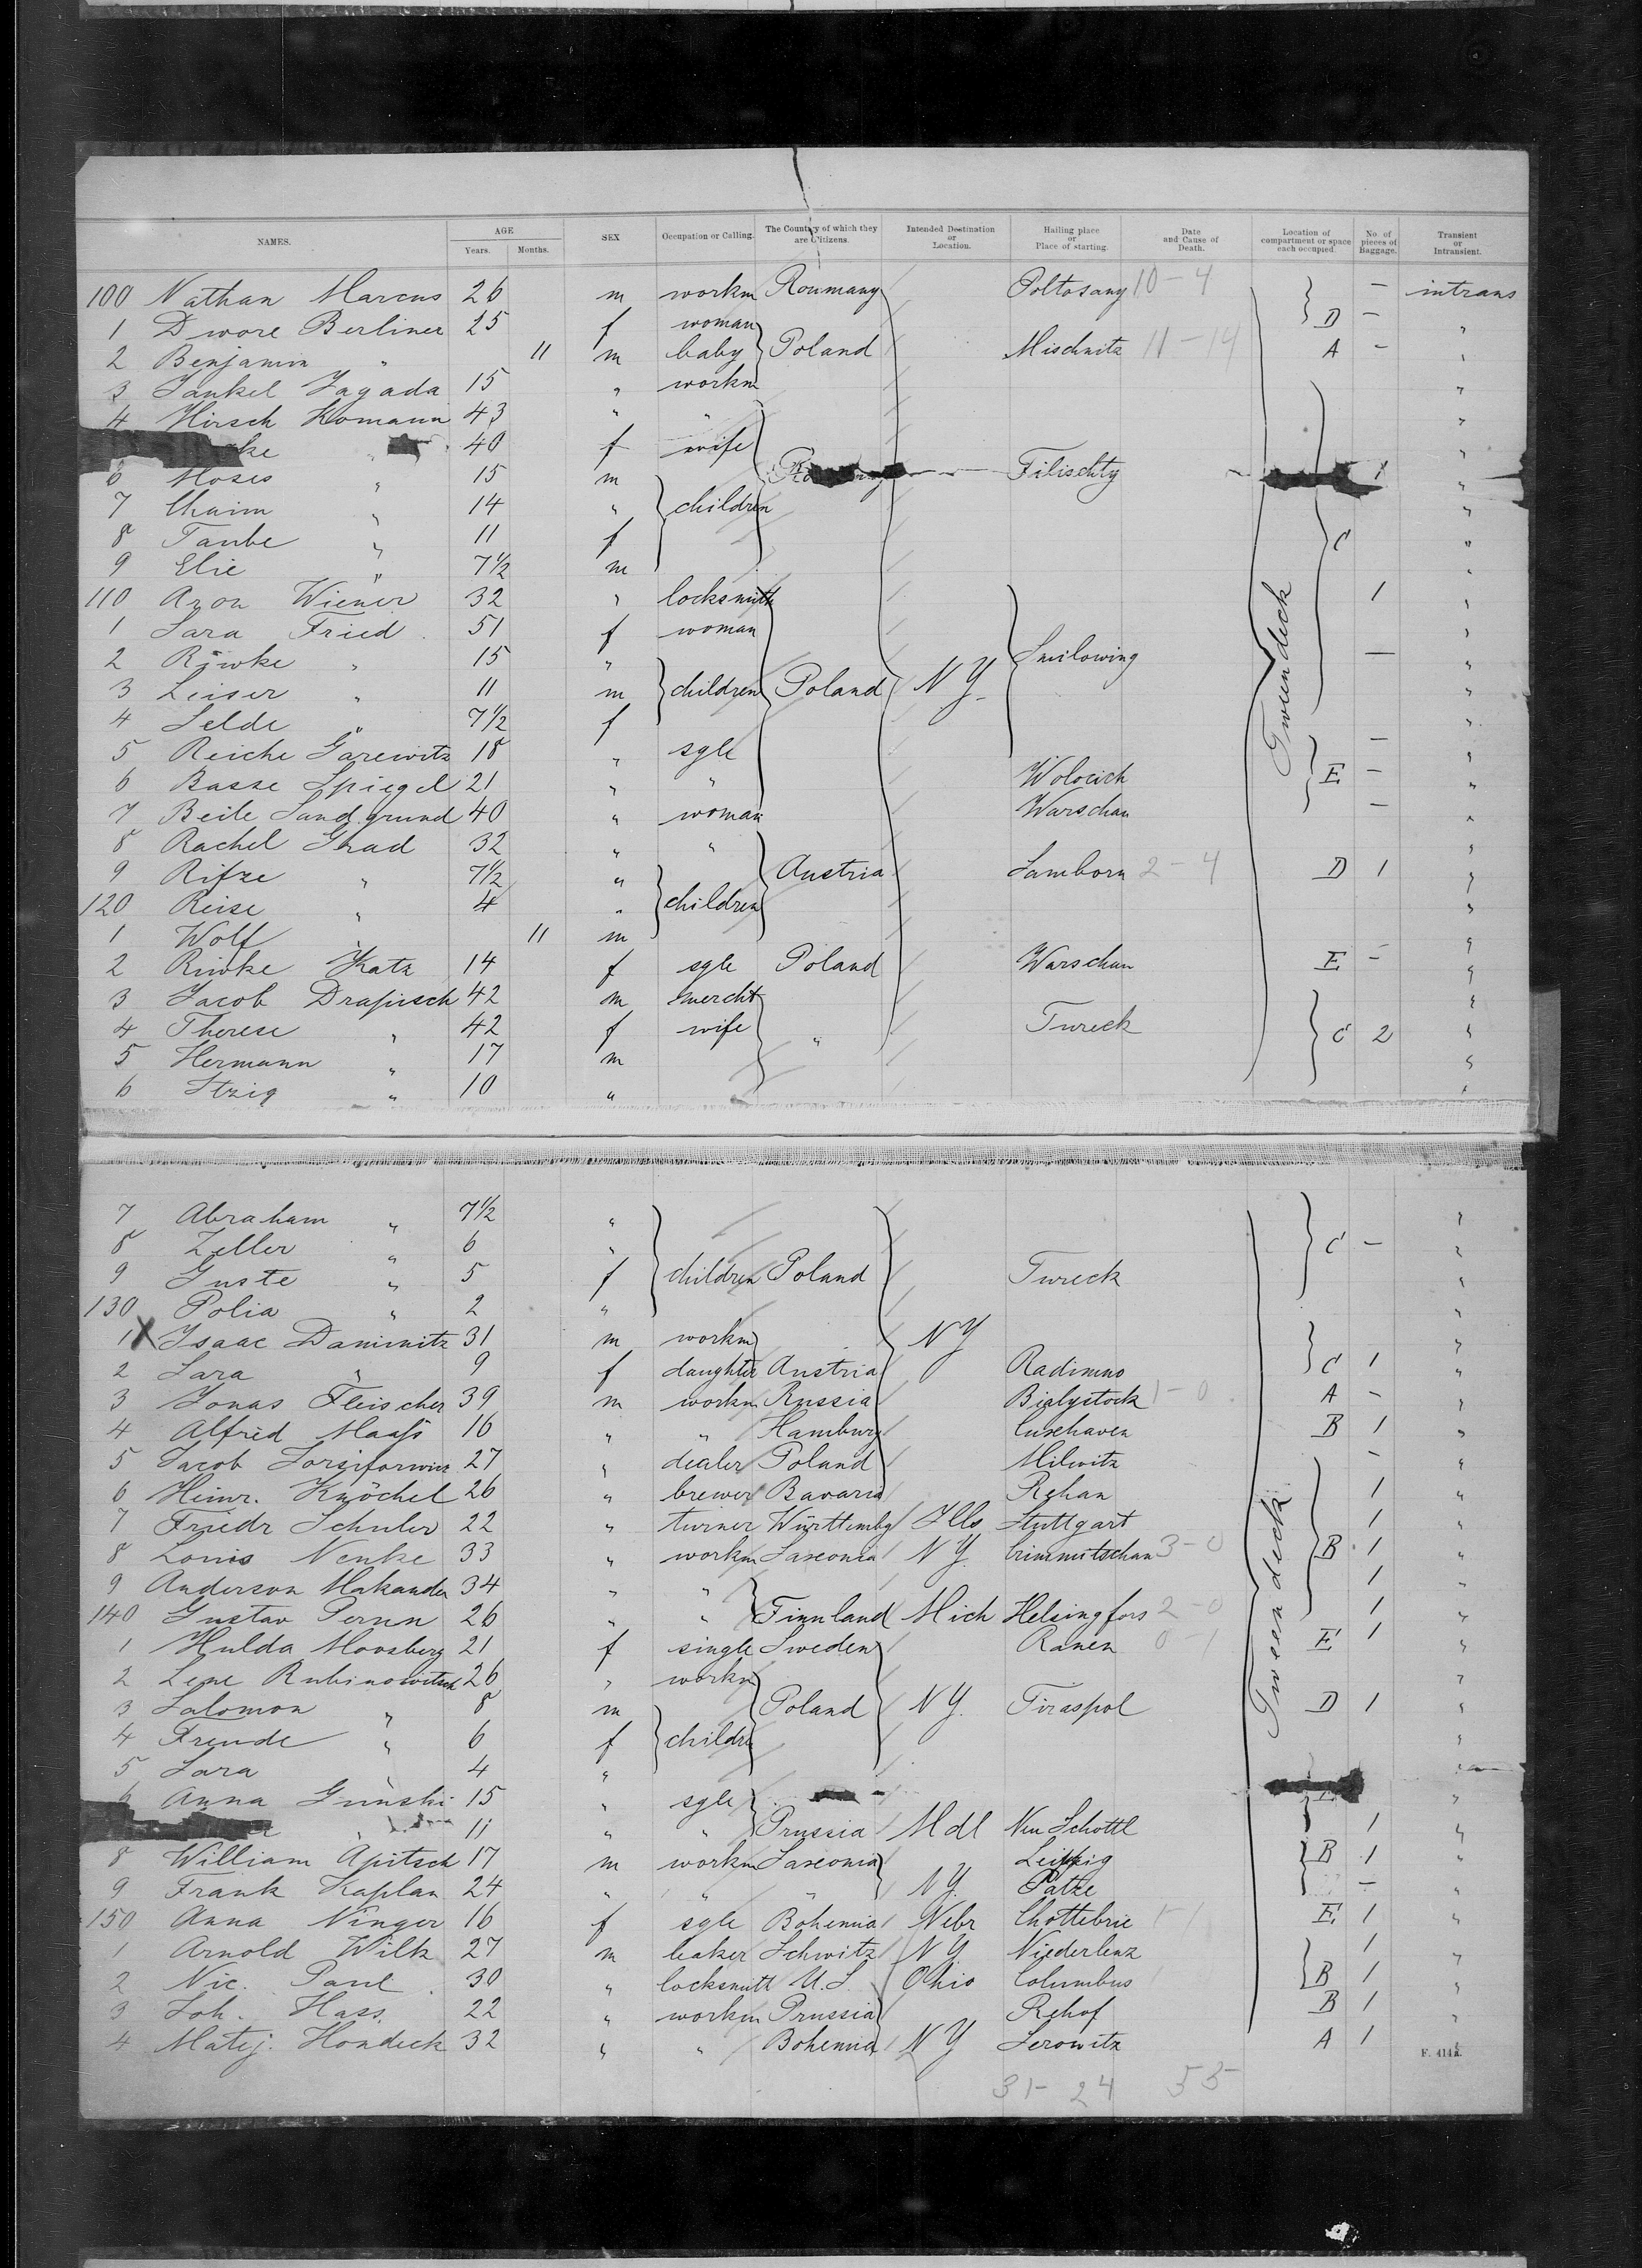 NAMES. AGE Years. Months. SEX Occupation or Calling. The Country of which they are Citizens. Intended Destination or Location. Hailing place or Place of starting. Date and Cause of Death. Location of compartment or space each occupied. No. of pieces of Baggage. Transient or Intransient.
100 Nathan Marcus 26 m workm Roumany Poltosany 10-4 - intrans
1 Dwore Berliner 25 f woman D - "
2 Benjamin " 11 m baby Poland Mischnitz 11-14 A - "
3 Jankel Jagada 15 " workm "
4 Hirsch Komann 43 " " "
ke " 40 f wife "
6 Moses " 15 m Filischty 1 "
7 Chaim " 14 " children "
8 Taube " 11 f C "
9 Elie " 7 1/2 m "
110 Aron Wiener 32 " locksmith 1 "
1 Sara Fried 51 f woman "
2 Riwke " 15 " Smilowing - "
3 Leiser " 11 m children Poland N Y "
4 Selde " 7 1/2 f "
5 Reiche Garewitz 18 " sgle - "
6 Basse Spiegel 21 " " Wolocich E - "
7 Beile Sandgrund 40 " woman Warschau - "
8 Rachel Grad 32 " " "
9 Rifze " 7 1/2 " Austria Samborn 2-4 D 1 "
120 Reise " 4 " children "
1 Wolf " 11 m "
2 Riwke Katz 14 f sgle Poland Warschau E - "
3 Jacob Drapisch 42 m mercht "
4 Therese " 42 f wife " Tureck C 2 "
5 Hermann " 17 m "
6 Itzig " 10 " "
Tweendeck
7 Abraham " 7 1/2 " "
8 Zeller " 6 " C - "
9 Guste " 5 f children Poland Tureck "
130 Polia " 2 " "
1 X Isaac Daminitz 31 m workm N Y "
2 Sara " 9 f daughter Austria Radimno C 1 "
3 Jonas Fleischer 39 m workm Russia Bialystock 1-0 A - "
4 Alfred Maaß 16 " " Hamburg Cuxhaven B 1 "
5 Jacob 27 " dealer Poland Milwitz - "
6 Heinr. Knöchel 26 " brewer Bavaria Rehau 1 "
7 Friedr Schuler 22 " turner Württembg Ills Stuttgart 1 "
8 Louis Nenke 33 " workm Saxonia N Y. Crimmitschau 3-0 B 1 "
9 Anderson Makander 34 " " 1 "
140 Gustav Perun 26 " " Finnland Mich Helsingfors 2-0 1 "
1 Hulda Moosberg 21 f single Sweden Ranen 0-1 E 1 "
2 Lene Rubinowitsch 26 " workm "
3 Salomon " 8 m Poland N Y. Tiraspol D 1 "
4 Freude " 6 f childre "
5 Sara " 4 " "
6 Anna Gunski 15 " sgle "
" 11 " " Prussia Mdl Neu Schottl 1 "
8 William Apitsch 17 m workm Saxonia Leipzig B 1 "
9 Frank Kaplan 24 " " " N Y. Patze - "
150 Anna Ninger 16 f sgle Bohemia Nebr Chottebrie 1-1 E 1 "
1 Arnold Wilk 27 m baker Schwitz N Y Niederlenz 1 "
2 Nic. Paul 30 " locksmith U.S. Ohio Columbus B 1 "
3 Joh. Hass 22 " workm Prussia Rehof B 1 "
4 Matej. Hondeck 32 " " Bohemia N Y Serowitz A 1 "
Tween deck
F. 414
31-24 55